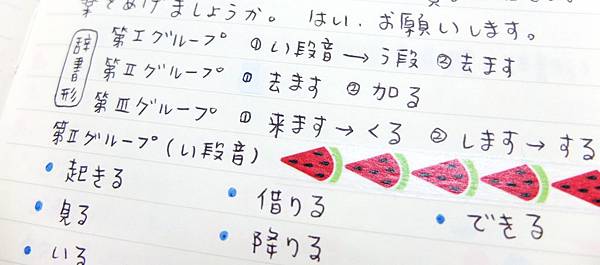 をあげましょうか。 はい、お願いします。
辞書形
第Ⅰグループ ① い段音→う段 ② 去ます
第Ⅱグループ ① 去ます ② 加る
第Ⅲグループ ① 来ます→くる ② します→する
第Ⅱグループ(い段音)
• 起きる • 借りる • できる
• 見る • 降りる
• いる